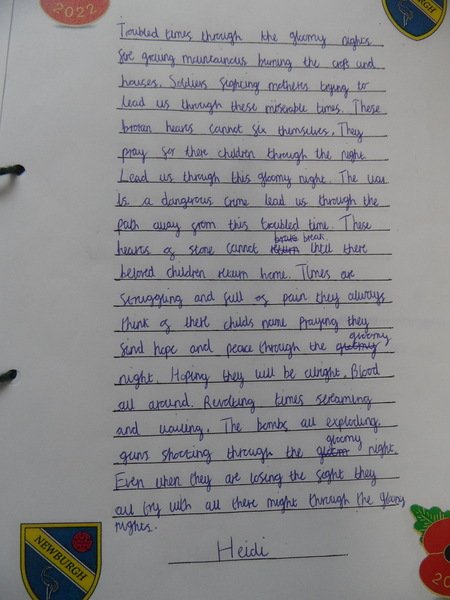 2022
Troubled times through the gloomy nights
fire growing mountainous burning the craft and
houses. Soldiers fighting mothers trying to
lead us through these miserable times. These
broken hearts cannot fix themselves. They
pray for there children through the night
Lead us through this gloomy night. The war
Is a dangerous crime lead us through the
path away from this troubled time. These
brake break
hearts of stone cannot return until there
beloved children return home. Times are
struggling and full of pain they always
think of there childs name praying they
gloomy
find hope and peace through the gloomy
night. Hoping they will be alright. Blood
all around. Revolting times screaming
and wailing. The bombs all exploding
gloomy
guns shooting through the gloom night.
Even when they are losing the fight they
all try with all there might through the
nights.
NEWBURGH
Heidi
20